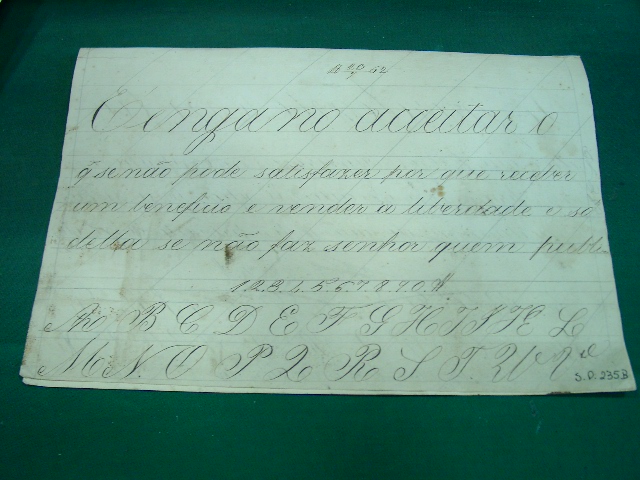 E ingano acceitar o
q̃ se não pode satisfazer por que receber
um beneficio e vender a liberdade e so
della se não faz senhor quem publi
1.2.3.4.5.6.7.8.9.0.
A B C D E F G H I J K L
M N O P Q R S T U V
S.D. 235B